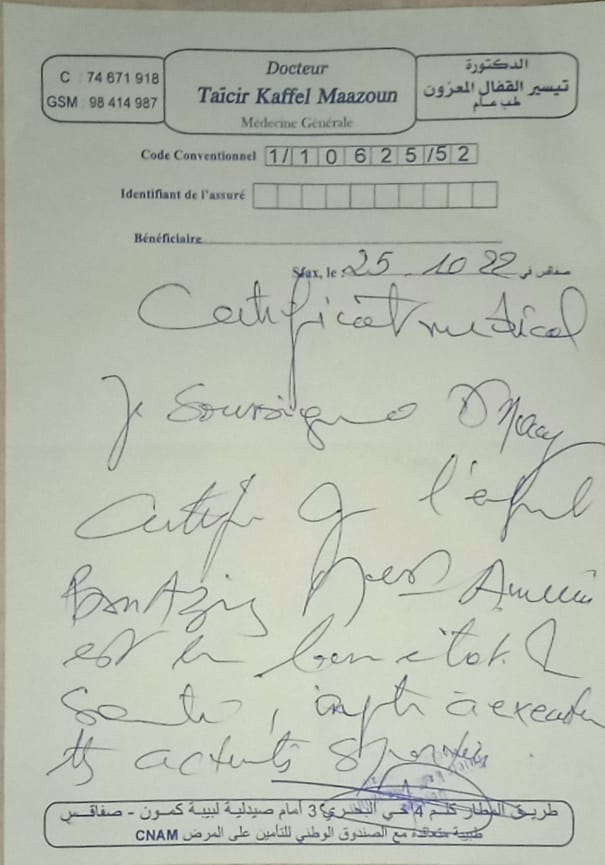 C : 74 671 918
GSM : 98 414 987
Docteur
Taïcir Kaffel Maazoun
Médecine Générale
الدكتورة
تيسير القفال المعزون
طب عام
Code Conventionnel 1/10625/52
Identifiant de l'assuré
Bénéficiaire
Sfax, le : 25.10 22 صفاقس في
Certificat médical
Je soussigné Dr
Certifie que l'enfant
Ben Aziz Amin
est en bon état de
santé, à exécuter
ts activités sportives.
طريق المطار كلم 4 في البحري 3 أمام صيدلية لبيبة كمون - صفاقس
طبيبة متعاقدة مع الصندوق الوطني للتأمين على المرض CNAM